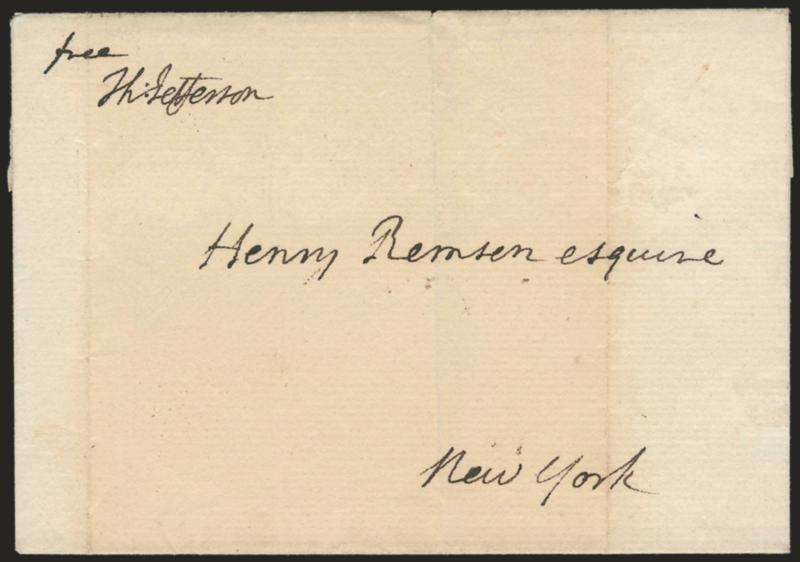 free
Th: Jefferson
Henry Remsen esquire
New York